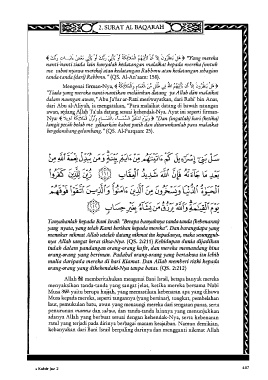 2. SURAT AL BAQARAH
هَلْ يَنظُرُونَ إِلَّا أَن تَأْتِيَهُمُ الْمَلَائِكَةُ أَوْ يَأْتِيَ رَبُّكَ أَوْ يَأْتِيَ بَعْضُ آيَاتِ رَبِّكَ "Yang mereka
nanti-nanti tiada lain hanyalah kedatangan malaikat kepada mereka (untuk
me cabut nyawa mereka) atau kedatangan Rabbmu atau kedatangan sebagian
tanda-tanda (dari) Rabbmu." (QS. Al-An'aam: 158).
Mengenai firman-Nya,
"Tiada yang mereka nanti-nantikan melainkan datang ya Allah dan malaikat
dalam naungan awan," Abu Ja'far ar-Razi meriwayatkan, dari Rabi' bin Anas,
dari Abu al-Aliyah, ia mengatakan, "Para malaikat datang di bawah naungan
awan, sedang Allah Ta'ala datang sesuai kehendak-Nya. Ayat ini seperti firman-
Nya: وَيَوْمَ تَشَقَّقُ السَّمَاءُ بِالْغَمَامِ وَنُزِّلَ الْمَلَائِكَةُ تَنزِيلًا "Dan (ingatlah) hari (ketika)
langit pecah belah me ngeluarkan kabut putih dan diturunkanlah para malaikat
bergelombang-gelombang." (QS. Al-Furqaan: 25).
سَلْ بَنِي إِسْرَائِيلَ كَمْ آتَيْنَاهُم مِّنْ آيَةٍ بَيِّنَةٍ وَمَن يُبَدِّلْ نِعْمَةَ اللَّهِ مِن
بَعْدِ مَا جَاءَتْهُ فَإِنَّ اللَّهَ شَدِيدُ الْعِقَابِ زُيِّنَ لِلَّذِينَ كَفَرُوا
الْحَيَاةُ الدُّنْيَا وَيَسْخَرُونَ مِنَ الَّذِينَ آمَنُوا وَالَّذِينَ اتَّقَوْا فَوْقَهُمْ
يَوْمَ الْقِيَامَةِ وَاللَّهُ يَرْزُقُ مَن يَشَاءُ بِغَيْرِ حِسَابٍ
Tanyakanlah kepada Bani Israil: "Berapa banyaknya tanda-tanda (kebenaran)
yang nyata, yang telah Kami berikan kepada mereka". Dan barangsiapa yang
menukar nikmat Allah setelah datang nikmat itu kepadanya, maka sesungguh-
nya Allah sangat keras siksa-Nya. (QS. 2:211) Kehidupan dunia dijadikan
indah dalam pandangan orang-orang kafir, dan mereka memandang hina
orang-orang yang beriman. Padahal orang-orang yang bertakwa itu lebih
mulia daripada mereka di hari Kiamat. Dan Allah memberi rizki kepada
orang-orang yang dikehendaki-Nya tanpa batas. (QS. 2:212)
Allah memberitahukan mengenai Bani Israil, berapa banyak mereka
menyaksikan tanda-tanda yang sangat jelas, ketika mereka bersama Nabi
Musa yaitu berupa hujjah, yang memastikan kebenaran apa yang dibawa
Musa kepada mereka, seperti tangannya (yang bersinar), tongkat, pembelahan
laut, pemukulan batu, awan yang menaungi mereka dari sengatan panas, serta
penurunan manna dan salwa, dan tanda-tanda lainnya yang menunjukkan
adanya Allah yang berbuat sesuai dengan kehendak-Nya, serta kebenaran
rasul yang terjadi pada dirinya berbagai macam keajaiban. Namun demikian,
kebanyakan dari Bani Israil berpaling darinya dan mengganti nikmat Allah
Katsir Juz 2
407